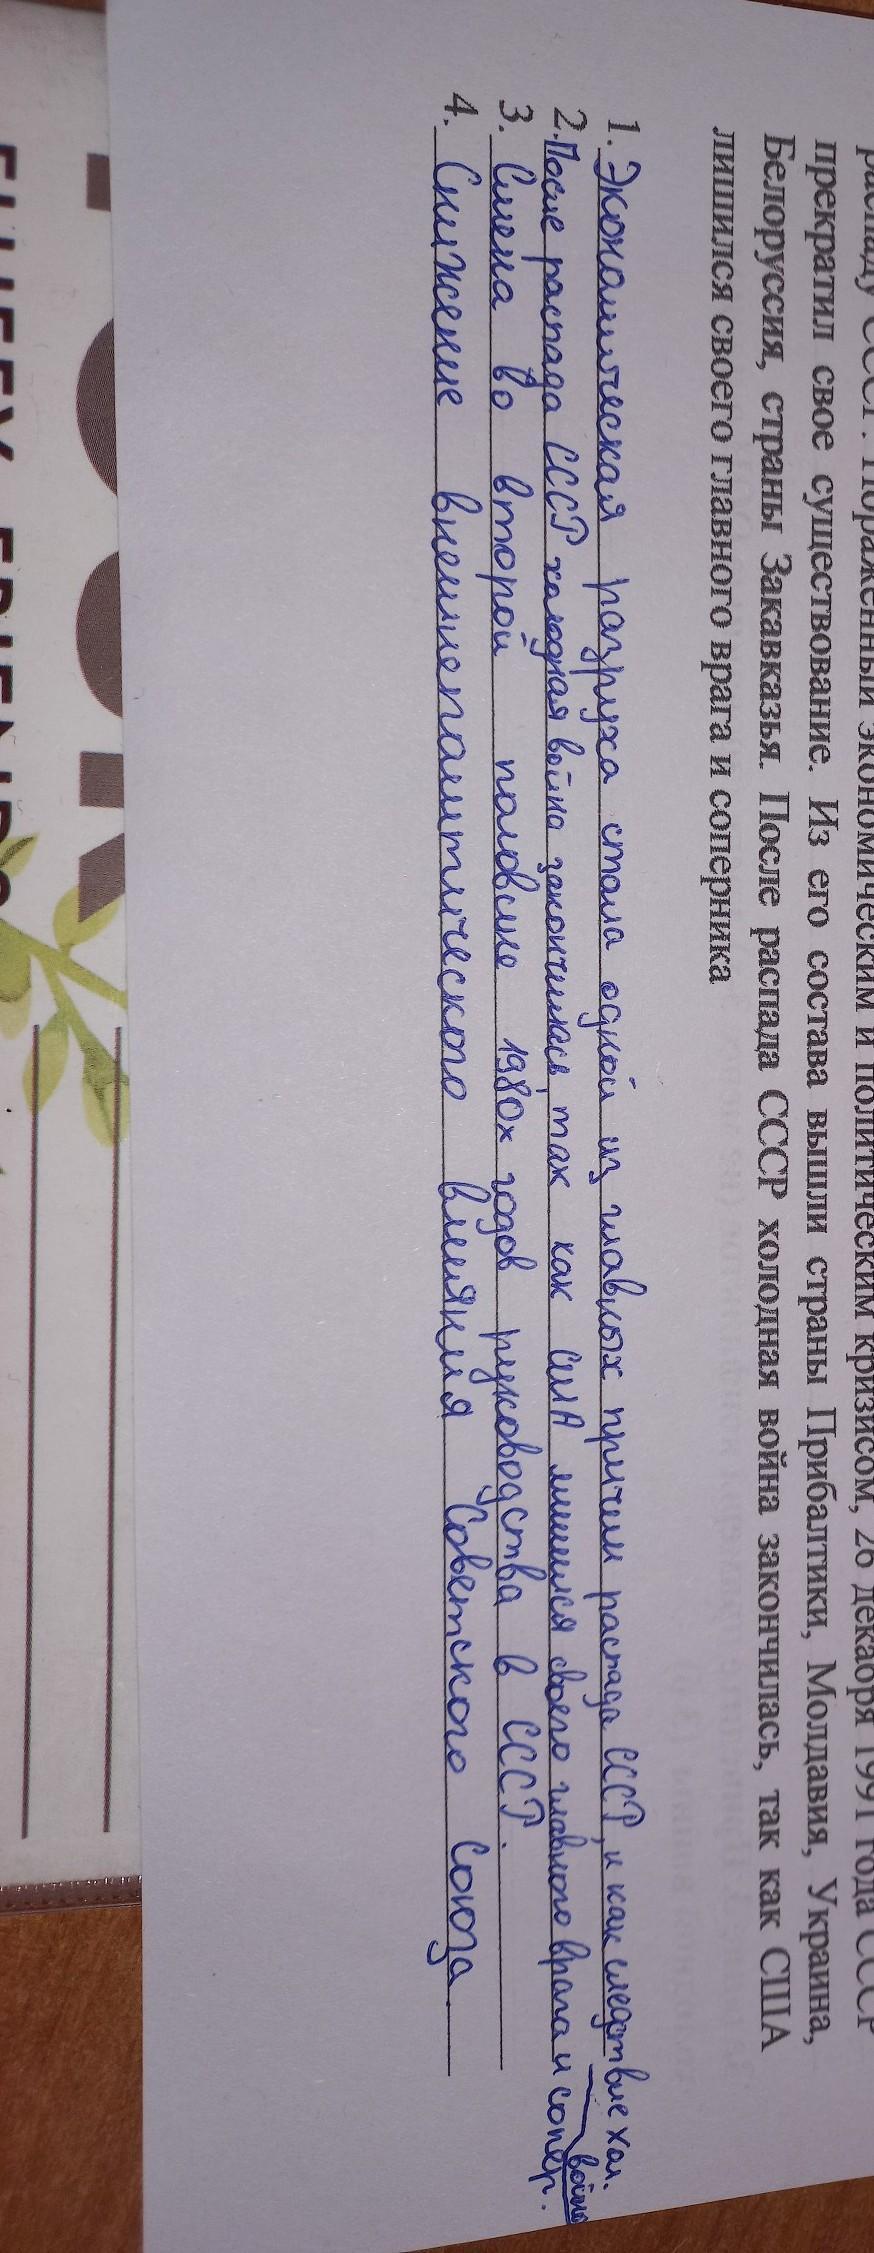 распаду СССР. Пораженный экономическим и политическим кризисом, 26 декабря 1991 года СССР
прекратил свое существование. Из его состава вышли страны Прибалтики, Молдавия, Украина,
Белоруссия, страны Закавказья. После распада СССР холодная война закончилась, так как США
лишился своего главного врага и соперника
1. Экономическая разруха стала одной из главных причин распада СССР, и как следствие хол.
война
2. После распада СССР холодная война закончилась, так как США лишился своего главного врага и сопер.
3. Смена во второй половине 1980х годов руководства в СССР.
4. Снижение внешнеполитического влияния Советского Союза